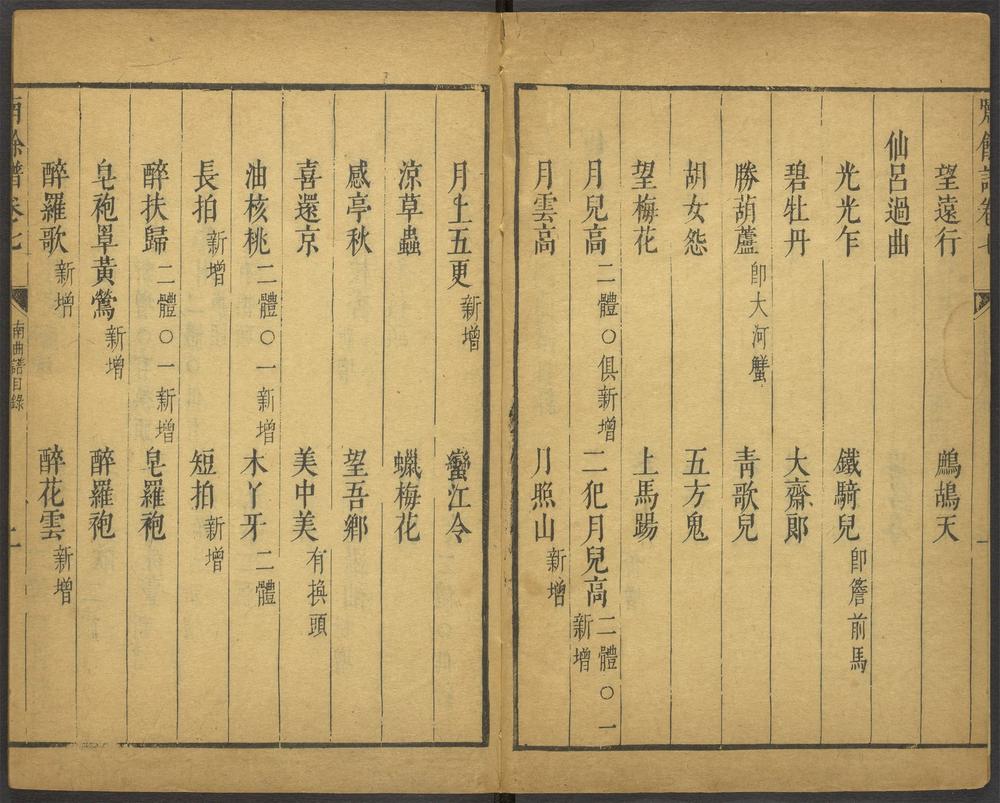 望遠行 鷓鴣天
仙呂過曲
光光乍 鐵騎兒 即簷前馬
碧牡丹 大齋郎
勝葫蘆 即大河蟹 靑歌兒
胡女怨 五方鬼
望梅花 上馬踢
月兒高 二體〇俱新增 二犯月兒高 二體〇一新增
月雲高 月照山 新增
月上五更 新增 蠻江令
涼草蟲 蠟梅花
感亭秋 望吾鄉
喜還京 美中美 有換頭
油核桃 二體〇一新增 木丫牙 二體
長拍 新增 短拍 新增
醉扶歸 二體〇一新增 皂羅袍
皂袍罩黃鶯 新增 醉羅袍
醉羅歌 新增 醉花雲 新增
南曲譜目錄